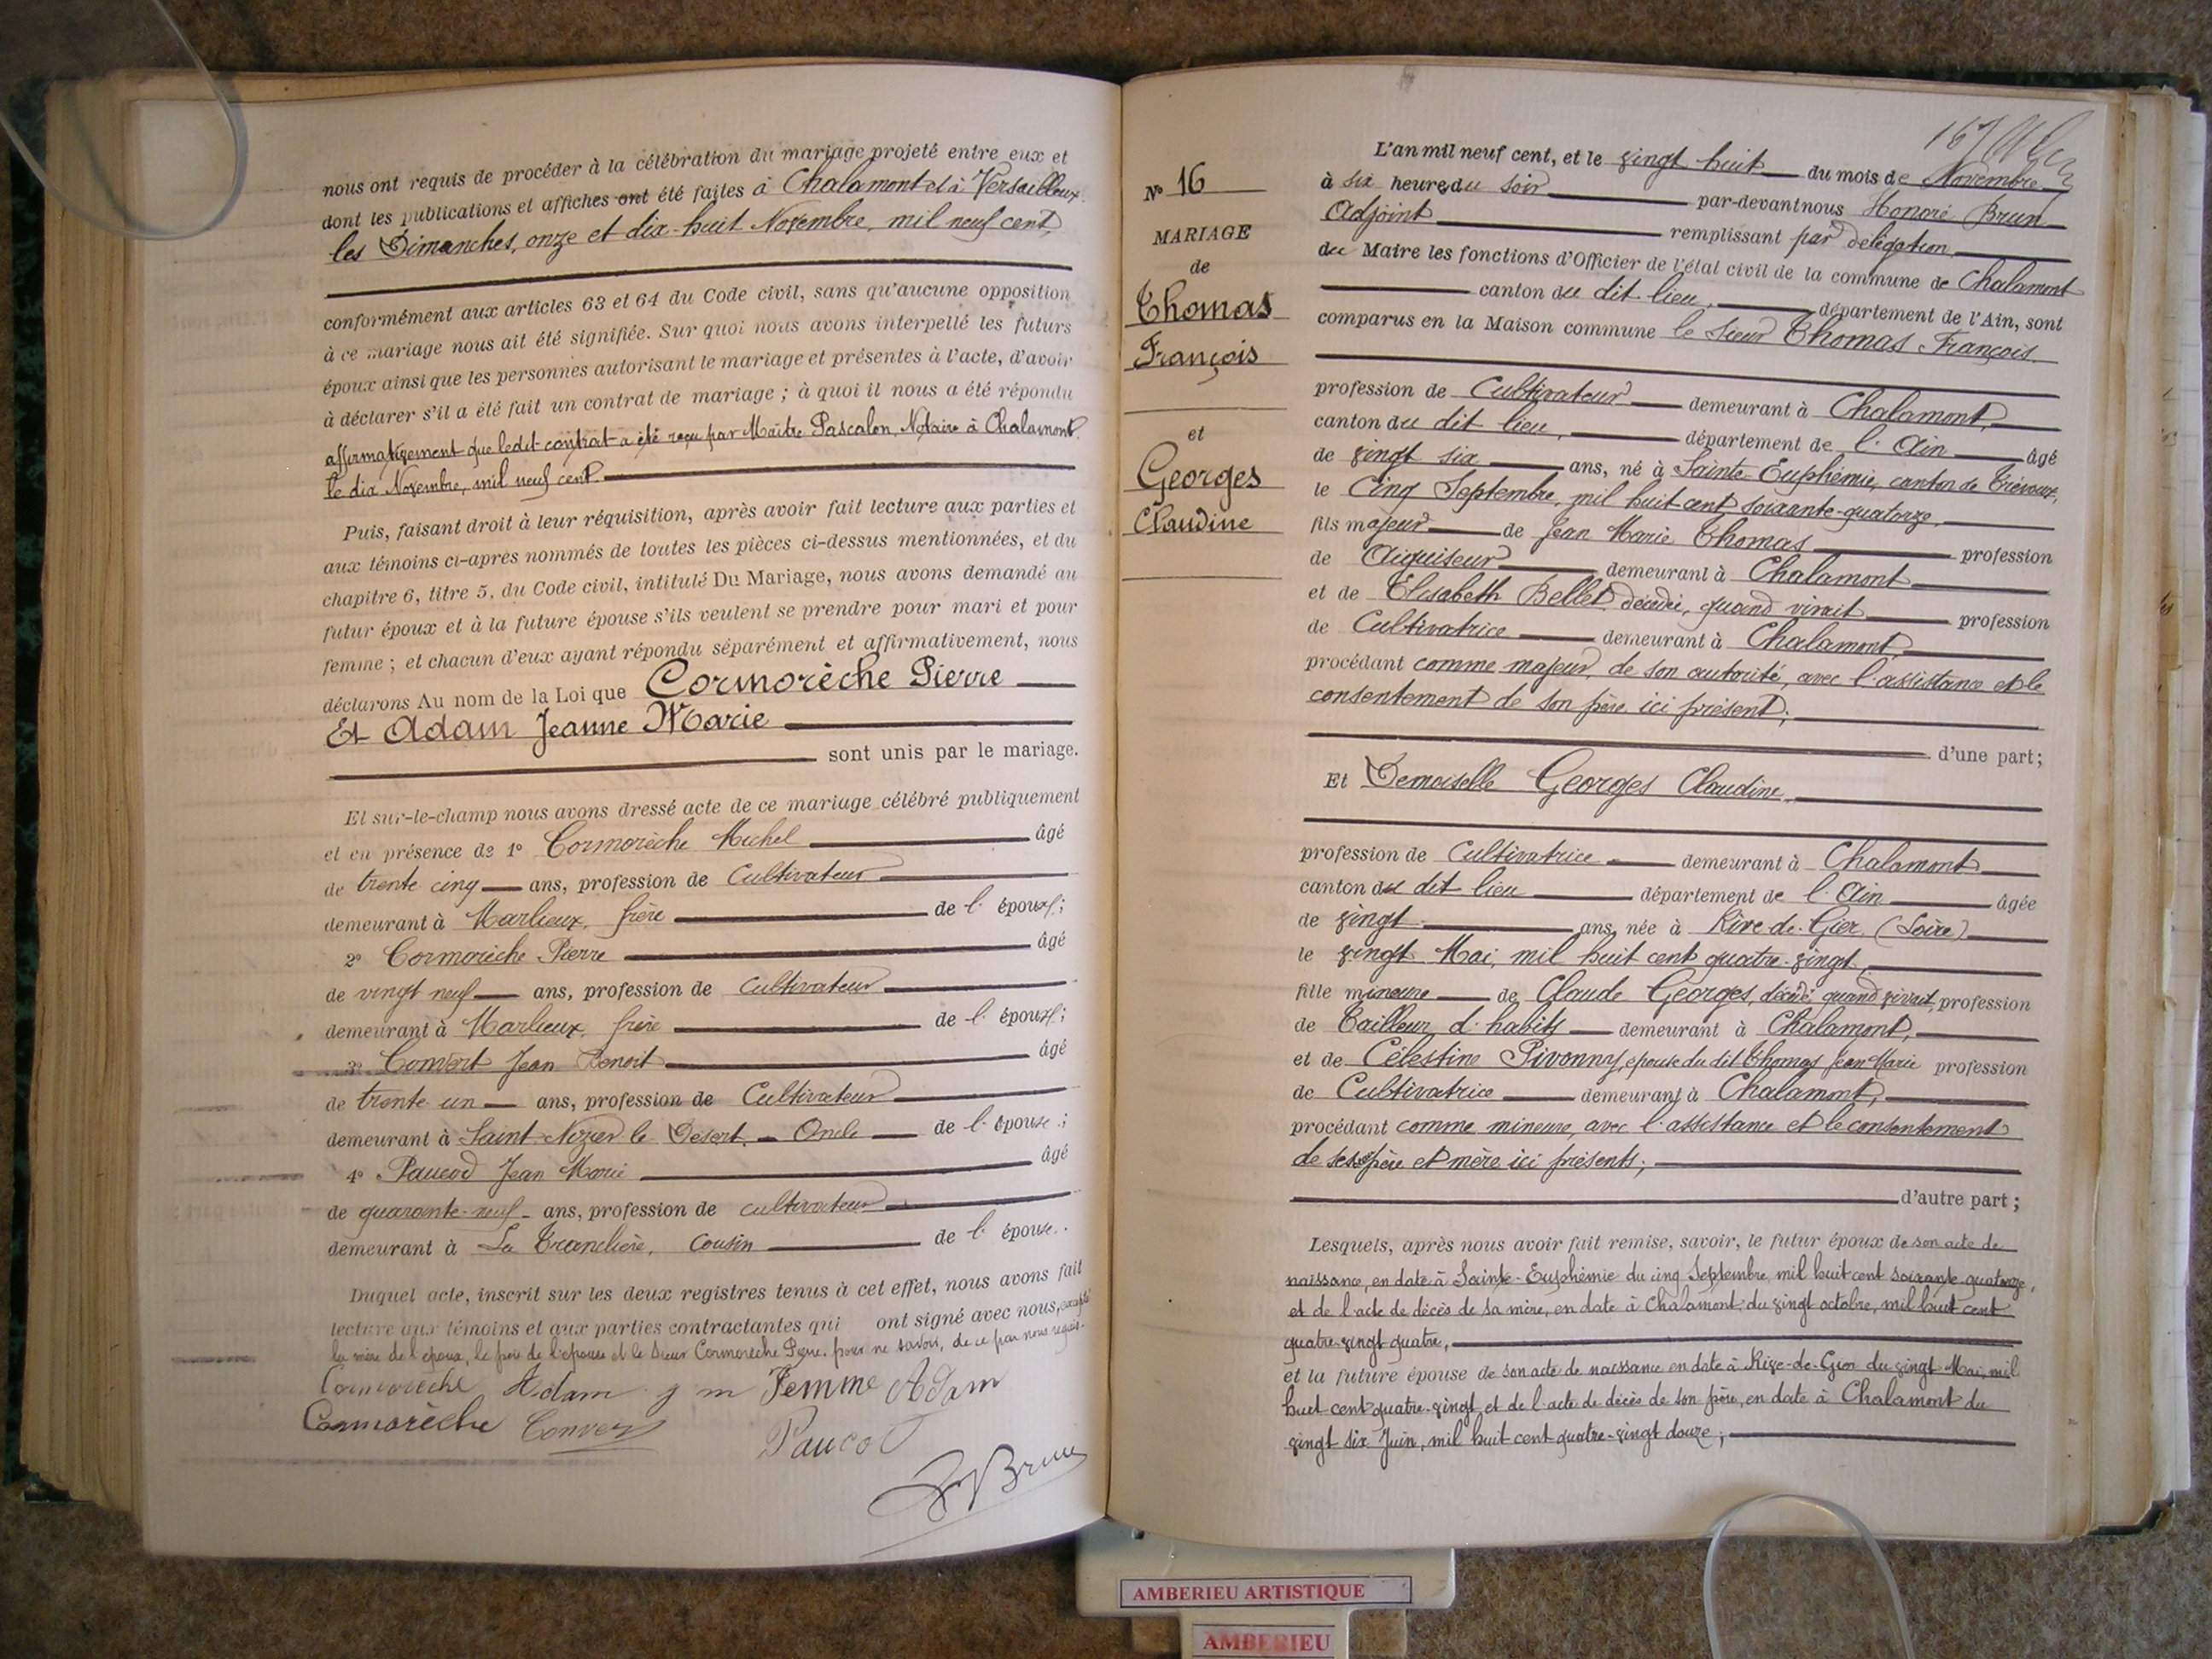 nous ont requis de procéder à la célébration du mariage projeté entre eux et
dont les publications et affiches ont été faites à Chalamont et à Versailleux
les Dimanches, onze et dix-huit Novembre, mil neuf cent,
conformément aux articles 63 et 64 du Code civil, sans qu'aucune opposition
à ce mariage nous ait été signifiée. Sur quoi nous avons interpellé les futurs
époux ainsi que les personnes autorisant le mariage et présentes à l'acte, d'avoir
à déclarer s'il a été fait un contrat de mariage ; à quoi il nous a été répondu
affirmativement que ledit contrat a été reçu par Maître Pascalon, Notaire à Chalamont.
le dix Novembre, mil neuf cent.
Puis, faisant droit à leur réquisition, après avoir fait lecture aux parties et
aux témoins ci-après nommés de toutes les pièces ci-dessus mentionnées, et du
chapitre 6, titre 5, du Code civil, intitulé Du Mariage, nous avons demandé au
futur époux et à la future épouse s'ils veulent se prendre pour mari et pour
femme ; et chacun d'eux ayant répondu séparément et affirmativement, nous
déclarons Au nom de la Loi que Cormorèche Pierre
Et Adam Jeanne Marie
sont unis par le mariage.
Et sur-le-champ nous avons dressé acte de ce mariage célébré publiquement
et en présence de 1° Cormorèche Michel âgé
de trente cinq ans, profession de Cultivateur
demeurant à Marlieux, frère de l' époux ;
2° Cormorèche Pierre âgé
de vingt neuf ans, profession de Cultivateur
demeurant à Marlieux, frère de l' époux ;
3° Convert Jean Benoit âgé
de trente un ans, profession de Cultivateur
demeurant à Saint-Nizier le Désert, Oncle de l' épouse ;
4° Paucod Jean Marie âgé
de quarante-neuf ans, profession de cultivateur
demeurant à La Tranclière, cousin de l' épouse.
Duquel acte, inscrit sur les deux registres tenus à cet effet, nous avons fait
lecture aux témoins et aux parties contractantes qui ont signé avec nous, excepté
la mère de l'époux, le père de l'épouse et le Sieur Cormorèche Pierre, pour ne savoir, de ce par nous requis.
Cormorèche Adam j m Femme Adam
Cormorèche Convert Paucod
Brun
N° 16
MARIAGE
de
Thomas
François
et
Georges
Claudine
L'an mil neuf cent, et le vingt huit du mois de Novembre
à six heures du soir par-devant nous Honoré Brun
Adjoint remplissant par délégation
du Maire les fonctions d'Officier de l'état civil de la commune de Chalamont
canton du dit lieu, département de l'Ain, sont
comparus en la Maison commune le Sieur Thomas François
profession de Cultivateur demeurant à Chalamont,
canton du dit lieu, département de l'Ain âgé
de vingt six ans, né à Sainte-Euphémie, canton de Trévoux,
le Cinq Septembre, mil huit cent soixante-quatorze,
fils majeur de Jean Marie Thomas profession
de Aiguiseur demeurant à Chalamont
et de Elisabeth Bellet, décédée, quand vivait profession
de Cultivatrice demeurant à Chalamont,
procédant comme majeur, de son autorité, avec l'assistance et le
consentement de son père ici présent;
d'une part;
Et Demoiselle Georges Claudine
profession de Cultivatrice demeurant à Chalamont
canton du dit lieu département de l'Ain âgée
de vingt ans, née à Rive-de-Gier (Loire)
le vingt Mai, mil huit cent quatre-vingt,
fille mineure de Claude Georges, décédé, quand vivait, profession
de Tailleur d'habits demeurant à Chalamont,
et de Célestine Pivonny, épouse du dit Thomas Jean Marie profession
de Cultivatrice demeurant à Chalamont,
procédant comme mineure, avec l'assistance et le consentement
de ses père et mère ici présents;
d'autre part ;
Lesquels, après nous avoir fait remise, savoir, le futur époux de son acte de
naissance, en date à Sainte-Euphémie du cinq Septembre, mil huit cent soixante-quatorze,
et de l'acte de décès de sa mère, en date à Chalamont, du vingt octobre, mil huit cent
quatre-vingt quatre,
et la future épouse de son acte de naissance en date à Rive-de-Gier du vingt Mai, mil
huit cent quatre-vingt, et de l'acte de décès de son père, en date à Chalamont du
vingt six Juin, mil huit cent quatre-vingt douze;
AMBERIEU ARTISTIQUE
AMBERIEU